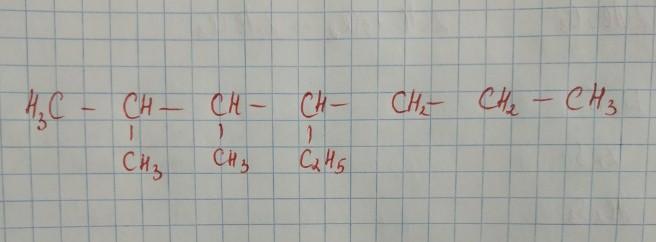 H₃C – CH – CH – CH – CH₂ – CH₂ – CH₃
CH₃ CH₃ C₂H₅